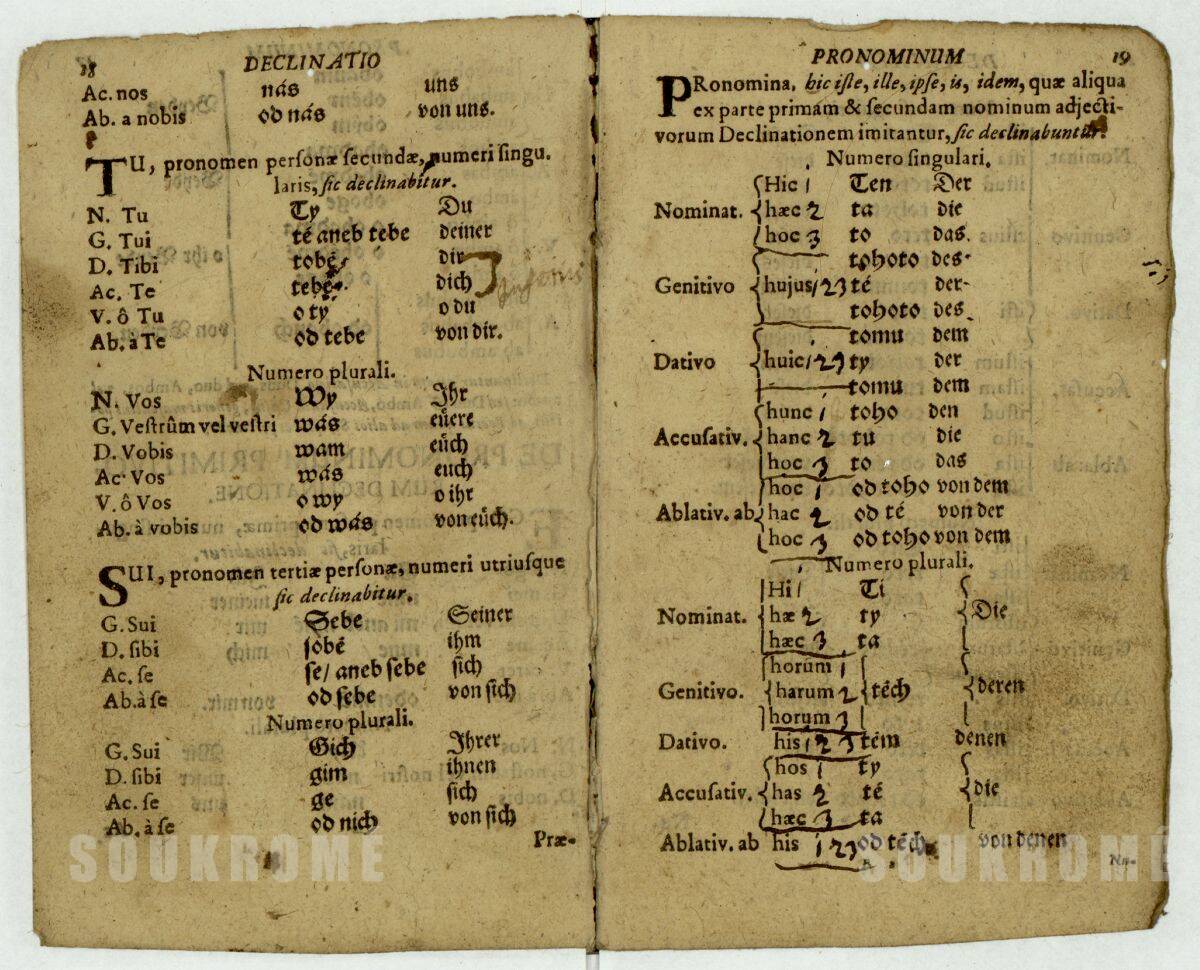 18 DECLINATIO
Ac. nos nás uns
Ab. a nobis od nás von uns.
TU, pronomen personæ secundæ, numeri singu.
laris, sic declinabitur.
N. Tu Ty Du
G. Tui té aneb tebe deiner
D. Tibi tobě dir
Ac. Te tebe dich
V. ô Tu o ty o du
Ab. à Te od tebe von dir.
Numero plurali.
N. Vos Wy Ihr
G. Vestrûm vel vestri wás eüere
D. Vobis wam eüch
Ac. Vos wás euch
V. ô Vos o wy o ihr
Ab. à vobis od wás von eüch.
SUI, pronomen tertiæ personæ, numeri utriusque
sic declinabitur.
G. Sui Sebe Seiner
D. sibi sobě ihm
Ac. se se/ aneb sebe sich
Ab. à se od sebe von sich
Numero plurali.
G. Sui Gich Ihrer
D. sibi gim ihnen
Ac. se ge sich
Ab. à se od nich von sich
Præ-
PRONOMINUM 19
PRonomina, hic iste, ille, ipse, is, idem, quæ aliqua
ex parte primam & secundam nominum adjecti-
vorum Declinationem imitantur, sic declinabuntur.
Numero singulari.
Hic 1 Ten Der
Nominat. hæc 2 ta die
hoc 3 to das.
tohoto des-
Genitivo hujus 1 2 3 té der-
tohoto des.
tomu dem
Dativo huic 1 2 3 ty der
tomu dem
hunc 1 toho den
Accusativ. hanc 2 tu die
hoc 3 to das
hoc 1 od toho von dem
Ablativ. ab hac 2 od té von der
hoc 3 od toho von dem
Numero plurali.
Hi 1 Ti
Nominat. hæ 2 ty Die
hæc 3 ta
horum 1
Genitivo. harum 2 těch deren
horum 3
Dativo. his 1 2 3 těm denen
hos 1 ty
Accusativ. has 2 té die
hæc 3 ta
Ablativ. ab his 1 2 3 od těch von denen
Nu-
SOUKROMÉ SOUKROMÉ